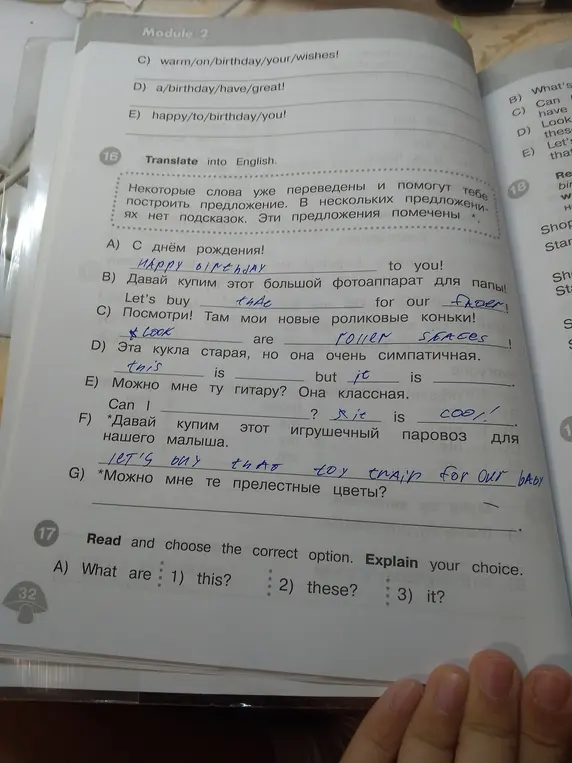 Module 2
C) warm/on/birthday/your/wishes!
D) a/birthday/have/great!
E) happy/to/birthday/you!
16 Translate into English.
Некоторые слова уже переведены и помогут тебе
построить предложение. В нескольких предложени-
ях нет подсказок. Эти предложения помечены *.
A) С днём рождения!
HAPPY BIRTHDAY to you!
B) Давай купим этот большой фотоаппарат для папы!
Let's buy that for our !
C) Посмотри! Там мои новые роликовые коньки!
LOOK are roller !
D) Эта кукла старая, но она очень симпатичная.
this is but it is .
E) Можно мне ту гитару? Она классная.
Can I ? it is cool! .
F) *Давай купим этот игрушечный паровоз для
нашего малыша.
LET'S buy that toy train for our baby
G) *Можно мне те прелестные цветы?
.
17 Read and choose the correct option. Explain your choice.
A) What are 1) this? 2) these? 3) it?
32
B) What's
C) Can
have
D) Look
thes
E) Let'
tha
18 Re
bir
w
н
Shop
Star
Shop
St
S
S